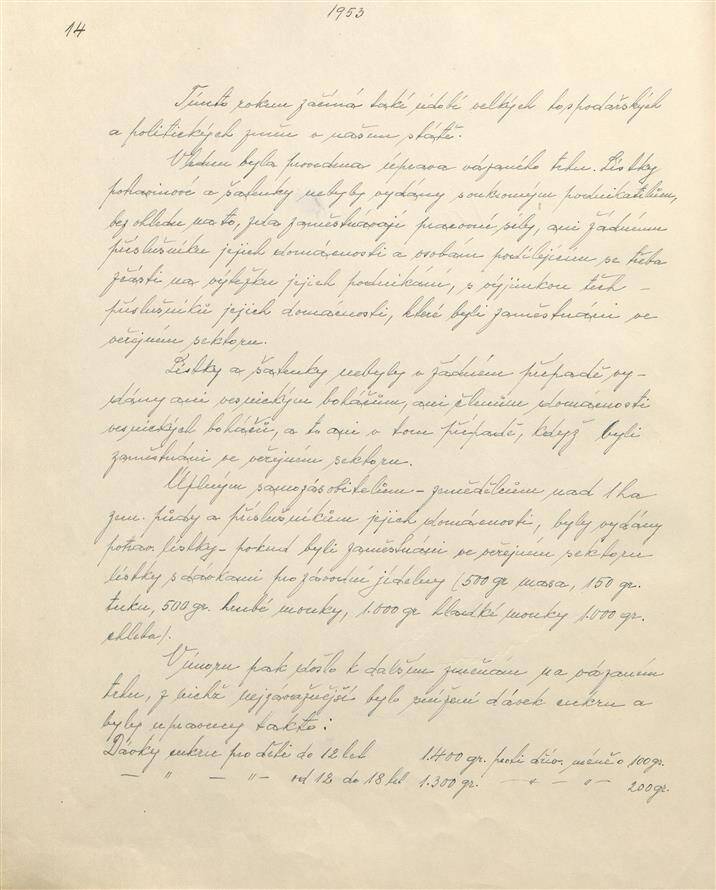 1953
14
Tímto rokem začíná také údobí velkých hospodářských
a politických změn v našem státě.
V lednu byla provedena úprava vázaného trhu. Lístky
potravinové a šatenky nebyly vydány soukromým podnikatelům,
bez ohledu na to, zda zaměstnávají pracovní síly, ani žádným
příslušníkům jejich domácnosti a osobám podílejícím se třeba
zčásti na výtěžku jejich podnikání, s výjimkou těch -
příslušníků jejich domácnosti, které byli zaměstnáni ve
veřejném sektoru.
Lístky a šatenky nebyly v žádném případě vy-
dány ani vesnickým boháčům, ani členům domácnosti
vesnických boháčů, a to ani v tom případě, když byli
zaměstnáni ve veřejném sektoru.
Úplným samozásobitelům - zemědělcům nad 1 ha
zem. půdy a příslušníkům jejich domácnosti, byly vydány
potrav. lístky - pokud byli zaměstnáni ve veřejném sektoru
lístky s dávkami pro závodní jídelny (500 gr masa, 150 gr.
tuku, 500 gr. hrubé mouky, 1.000 gr hladké mouky 1.000 gr.
chleba).
V únoru pak došlo k dalším změnám na vázaném
trhu, z nichž nejzávažnější bylo snížení dávek cukru a
byly upraveny takto:
Dávky cukru pro děti do 12 let 1.400 gr. proti dřív. méně o 100 gr.
— " — " — od 12 do 18 let 1.300 gr. — " — " — 200 gr.